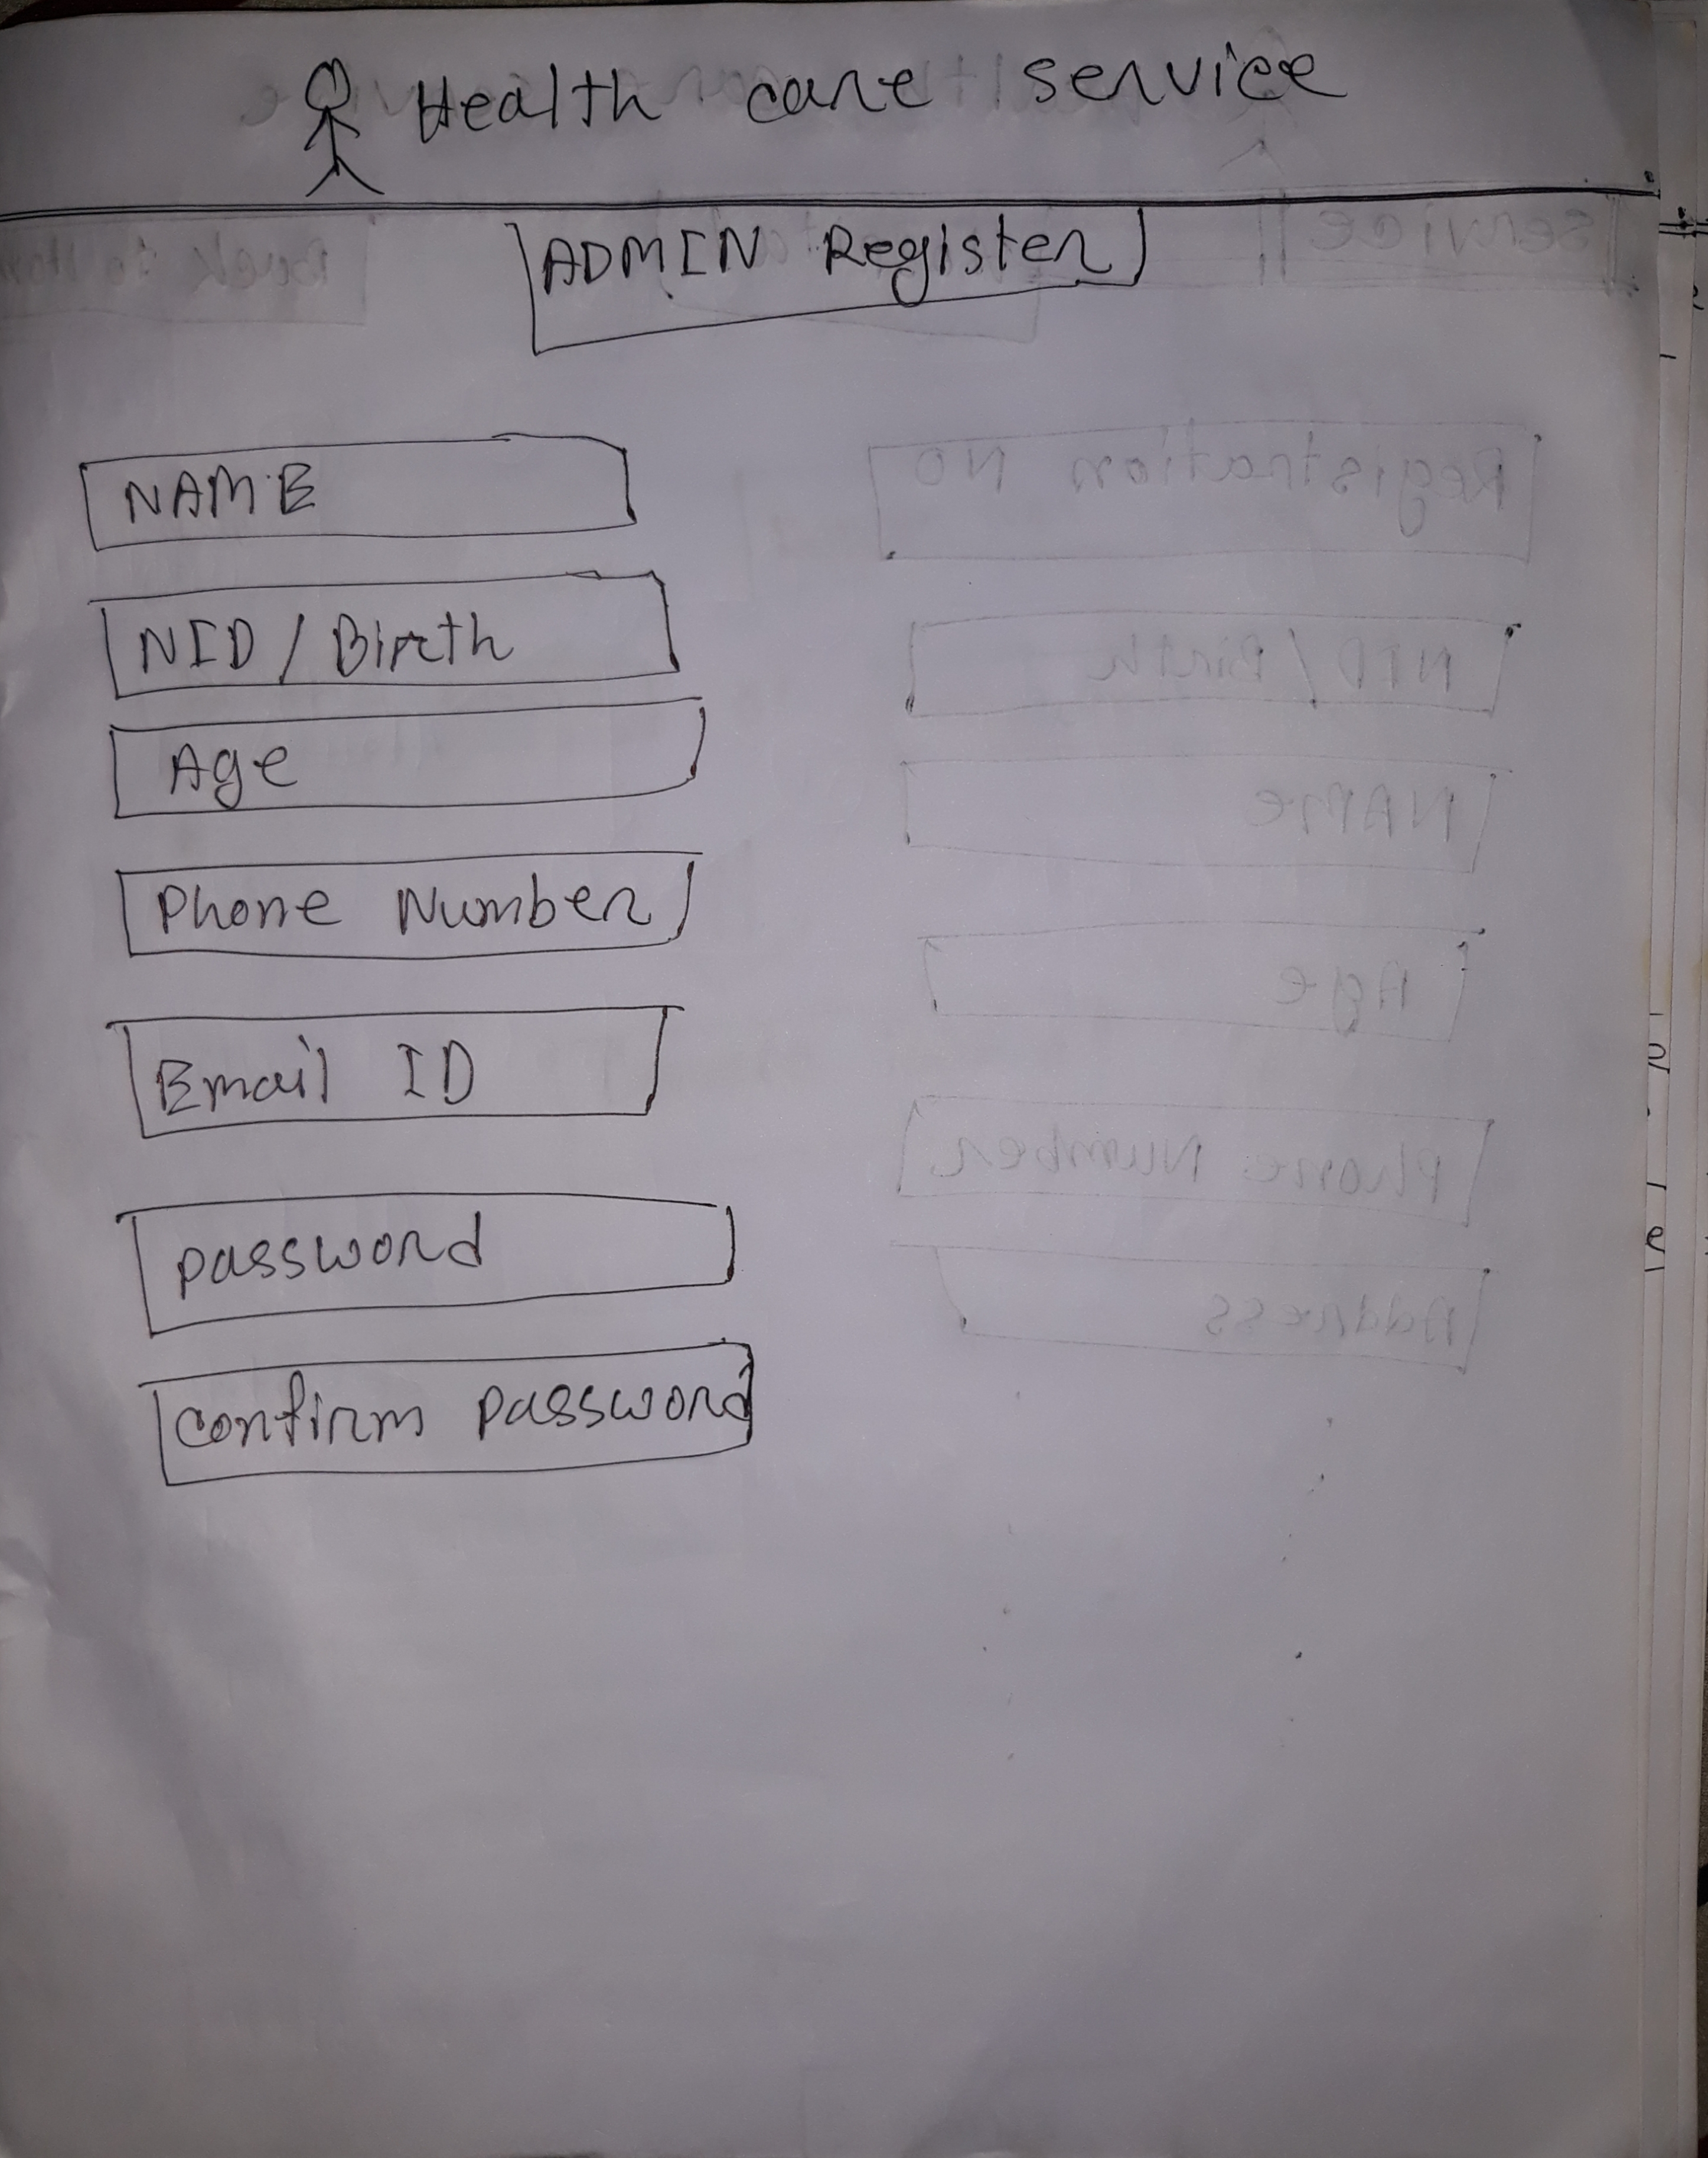 Health care service
ADMIN Register
NAME
NID / Birth
Age
Phone Number
Email ID
password
confirm password